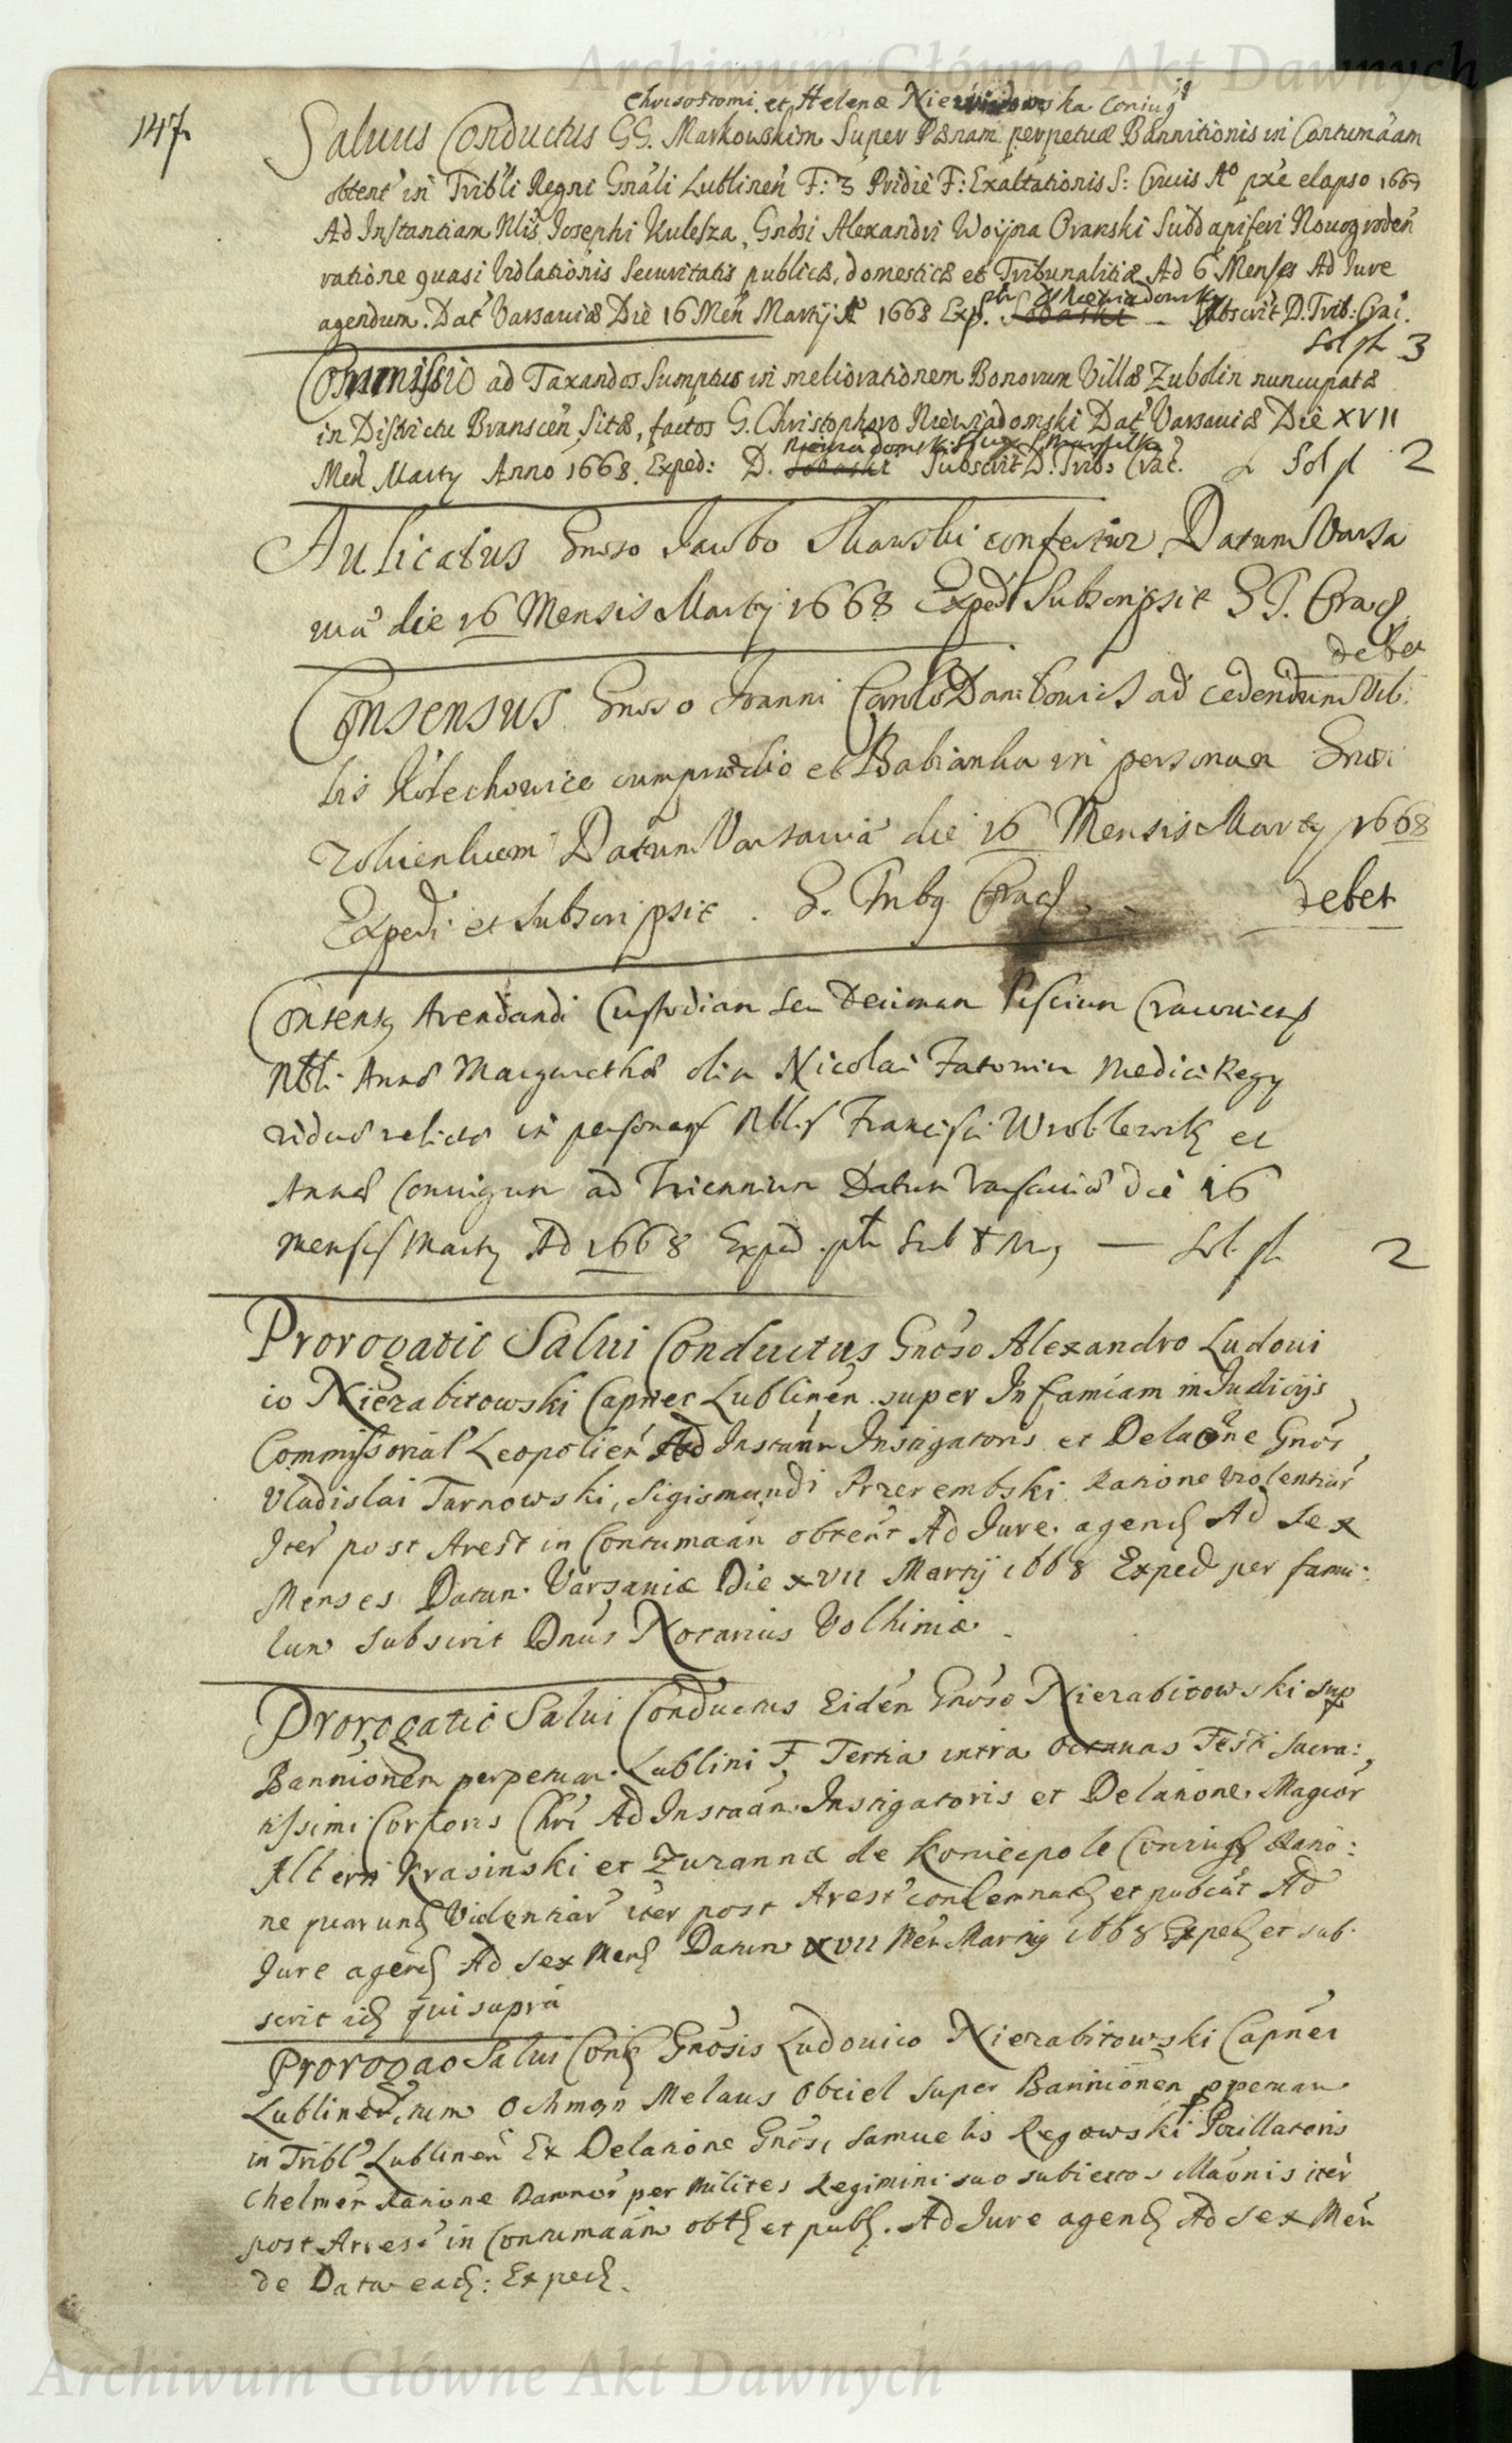 Archiwum Główne Akt Dawnych
147
Chrisostomi et Helenæ coniug
Salvus Conductus GG. Markowskim Super Pænam perpetuæ Bannitionis in Contumaam
obtent in Tribli Regni Gnāli Lublinen F: 3 Pridie F: Exaltationis S: Crucis Aō pxe elapso 1667
Ad Instantiam Nlis Josephi Kulesza, Gnōsi Alexandri Woyna Oranski Subdapiferi Nouogroden
ratione quasi violationis Securitatis publicæ, domesticæ et Tribunalitiæ Ad 6 Menses Ad Jure
agendum. Dat Varsaviæ Die 16 Men Martij Aō 1668 Exp. pth Niewiadomsky Subscrit D. Trib: Crac.
Sol pth 3
Commissio ad Taxandos Sumptus in meliorationem Bonorum Villæ Zubolin nuncupatæ
in Districtu Branscen Sitæ, factos G. Christophoro Niewiadomski Dat Varsaviæ Die XVII
Niewiadomski
Men Marty Anno 1668. Exped: D. Subscrit D. Trib: Crac. Sol pt 2
Aulicatus Gnoso Jacobo Skarski confertur Datum Varsa
viā die 16 Mensis Martij 1668 Exped Subscripsit S T. Crac
debet
Consensus Gnoso Joanni Carolo Danilowicz ad cedendum Vil:
lis Kolechowice cum prædio et Babianka in personam Gnosi
Datum Varsaviā die 16 Mensis Marty 1668
Expedi et Subscripsit. S. Trib Crac debet
Consens Arendandi Custodiam seu Decimam Piscium Cracoviens
Nbli Annæ Margarethæ olim Nicolai Fatowicz Medici Regy
viduæ relictæ in personas Nbls Francisci Wroblewsky et
Annæ Coniugum ad Triennium Datum Varsaviæ die 16
Mensis Marty Ad 1668 Exped. pth Sub — Sol. pt. 2
Prorogatio Salui Conductus Gnōso Alexandro Ludoui
co Nierabitowski Capnec Lublinen. super Infamiam in Iudicijs
Commissorial Leopolien Ad Instann Instigatoris et Delaōne Gnōs
Vladislai Tarnowski, Sigismundi Przerembski Ratione violentiar
Iter post Arest in Contumaān obtent Ad Jure agend Ad Sex
Menses Datum Varsaniæ Die XVII Martij 1668 Exped per famu:
lum Subscrit Dnus Notarius Volhiniæ.
Prorogatio Salui Conductus Eiden Gnoso Nierabitowski sup
Bannionem perpetuam Lublini F. Tertia intra Octauas Festi Sacra:
tissimi Corporis Chri Ad Instaān Instigatoris et Delatione Magcor
Alberti Krasinski et Zuzannæ de Koniecpole Coniug Ratio:
ne quarund Violentiar iter post Arest condemnat et publicat Ad
Jure agend Ad Sex Mens Datum XVII Men Martij 1668 Exped et sub.
scrit id qui suprā
Prorogao Salui Cond Gnōsis Ludouico Nierabitowski Capnei
Lublinen, tum Ochman Melaus Obciel Super Bannionen ppetuam
in Tribl Lublinen Ex Delatione Gnosi Samuelis Regowski Pocillatoris
Chelmen Ratione Damnor per Milites Regimini suo subiectos Illationis iter
post Arrest in Contumaām obt et publ. Ad Jure agend Ad Sex Men
de Data ead: Exped.
Archiwum Główne Akt Dawnych